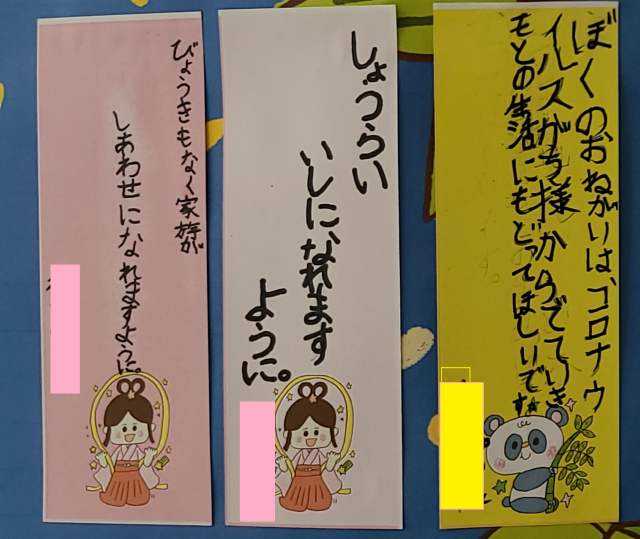 ぼくのおねがいは、コロナウ
イルスが からでていき
モとの生活にもどってほしいです
しょうらい
いしに、なれます
ように。
びょうきもなく家族が
しあわせになれますように。